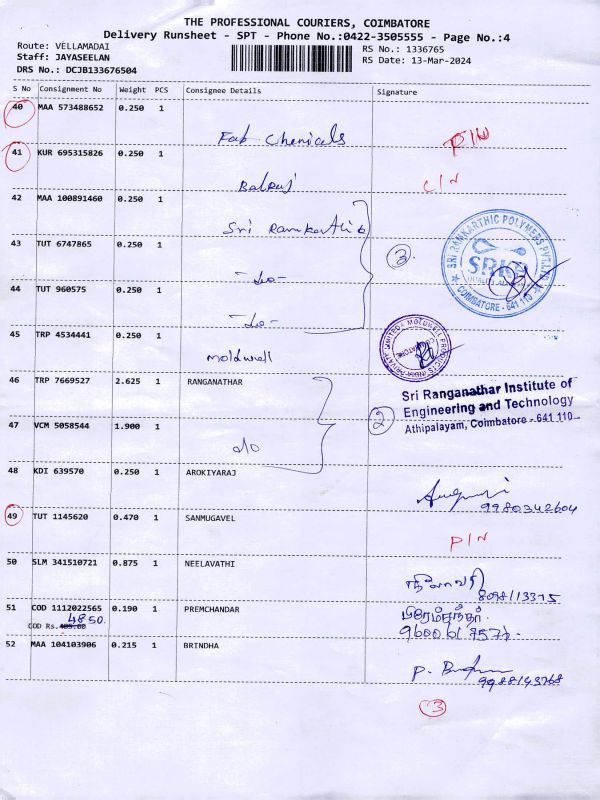 THE PROFESSIONAL COURIERS, COIMBATORE
Delivery Runsheet - SPT - Phone No.:0422-3505555 - Page No.:4
Route: VELLAMADAI
RS No.: 1336765
Staff: JAYASEELAN
RS Date: 13-Mar-2024
DRS No.: DCJB133676504
S No Consignment No Weight PCS Consignee Details Signature
40 MAA 573488652 0.250 1
Fab Chemicals
41 KUR 695315826 0.250 1
C/N
42 MAA 100891460 0.250 1
Sri Ramkarthik
43 TUT 6747865 0.250 1
-do-
3
SRI RAMKARTHIC POLYMERS PVT.LTD
COIMBATORE - 641 110
44 TUT 960575 0.250 1
-do-
45 TRP 4534441 0.250 1
Moldwell
46 TRP 7669527 2.625 1 RANGANATHAR
Sri Ranganathar Institute of
Engineering and Technology
Athipalayam, Coimbatore - 641 110
2
47 VCM 5058544 1.900 1
do
48 KDI 639570 0.250 1 AROKIYARAJ
9980342604
49 TUT 1145620 0.470 1 SANMUGAVEL
P/N
50 SLM 341510721 0.875 1 NEELAVATHI
நீலாவதி
51 COD 1112022565 0.190 1 PREMCHANDAR
பிரேம்சந்தர்
4850
COD Rs.
52 MAA 104103906 0.215 1 BRINDHA
9988143768
13